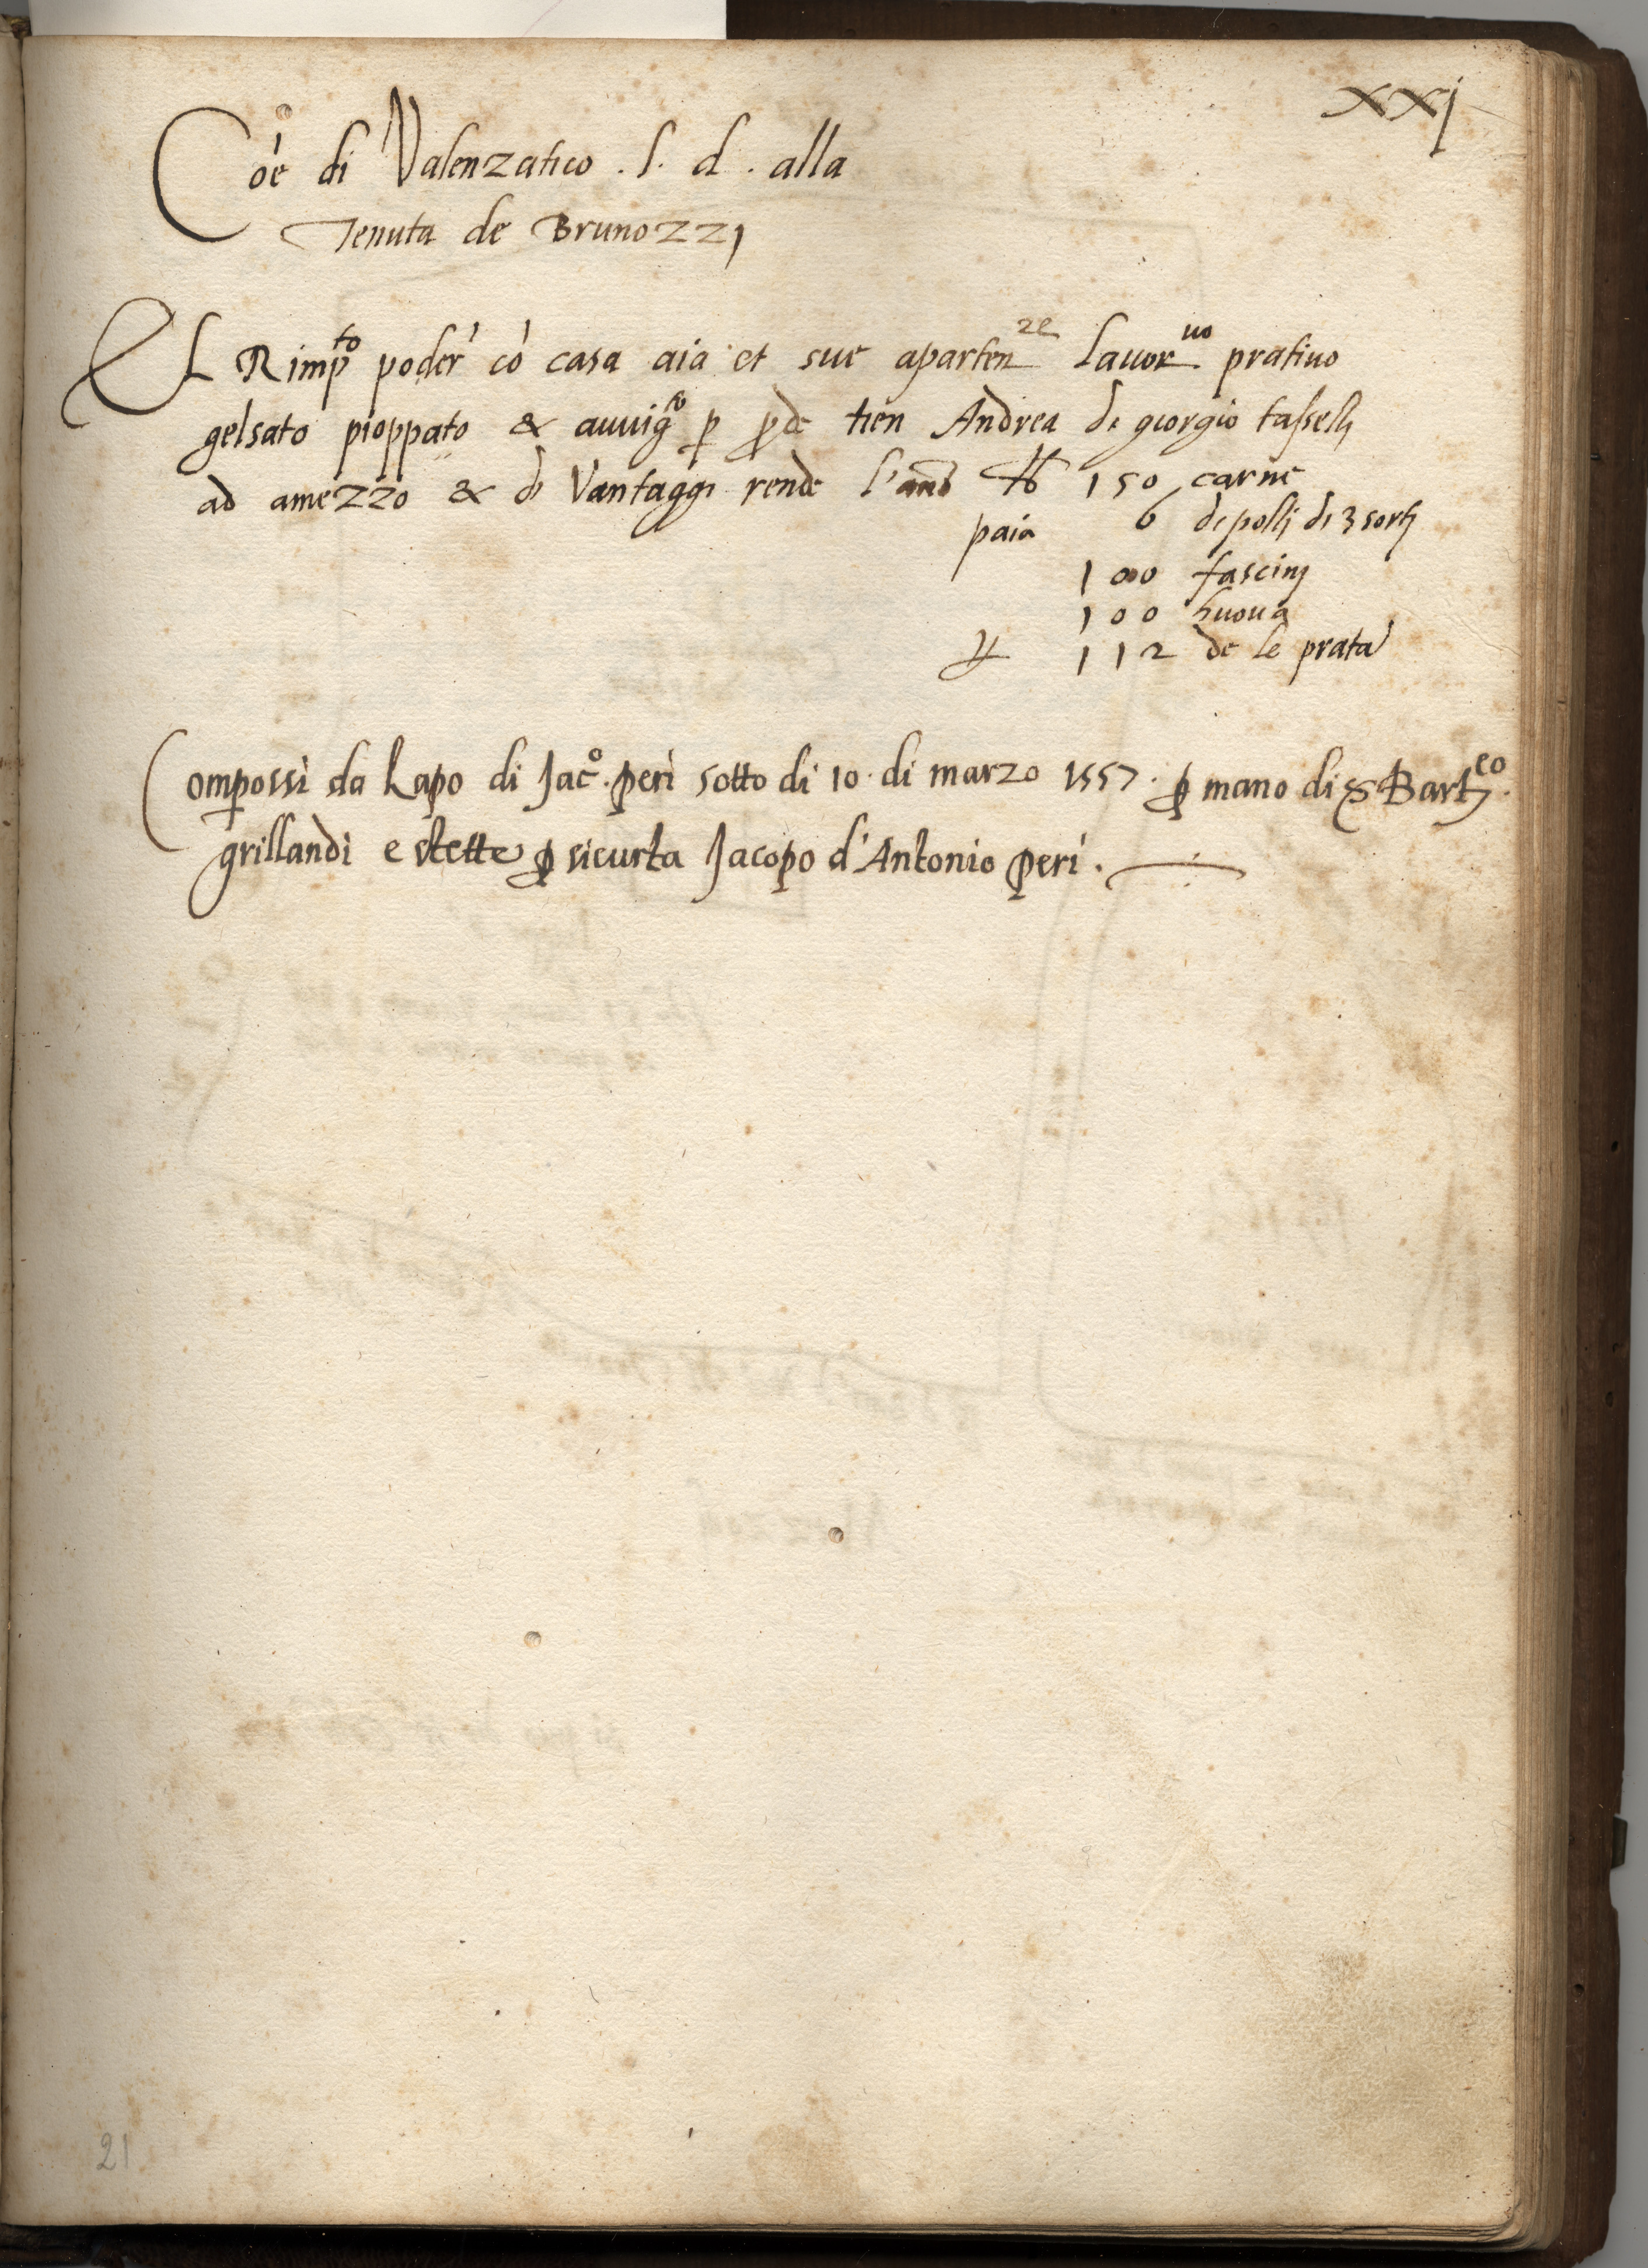 xxj
Coe di Valenzatico . s. d . alla
Tenuta de Brunozzj
El Rimp.to poder' co' casa aia et sue aparten.ze lavor.vo prativo
gelsato pioppato & avvig.to p pde tien Andrea di giorgio tasselli
ad amezzo & di Vantaggi rende l'anno ℔ 150 carne
paia 6 di pollj di 3 sorti
100 fascinj
100 huova
112 de le prata
Compossi da Lapo di Jac.o peri sotto di 10 di marzo 1557 . p mano di Bart.eo
grillandi e stette p sicurta Jacopo d'Antonio peri .
21